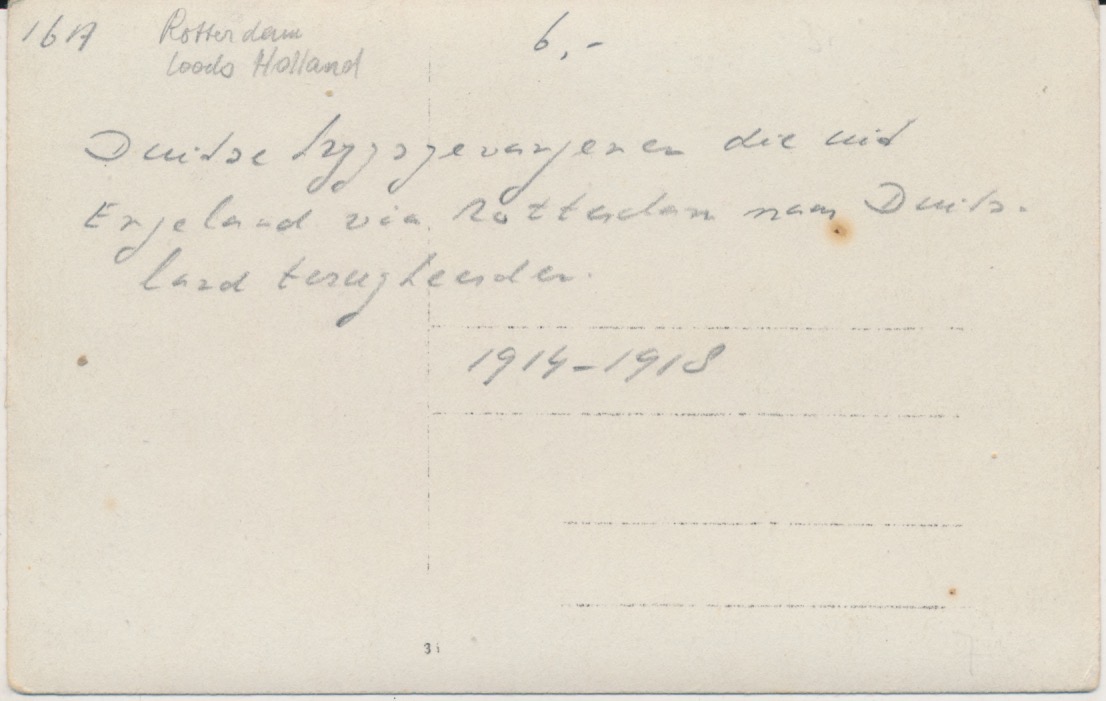 16A Rotterdam 6,-
loods Holland
Duitse krygsgevangenen die uit
Engeland via Rotterdam naar Duits-
land terugkeerden.
1914-1918
31